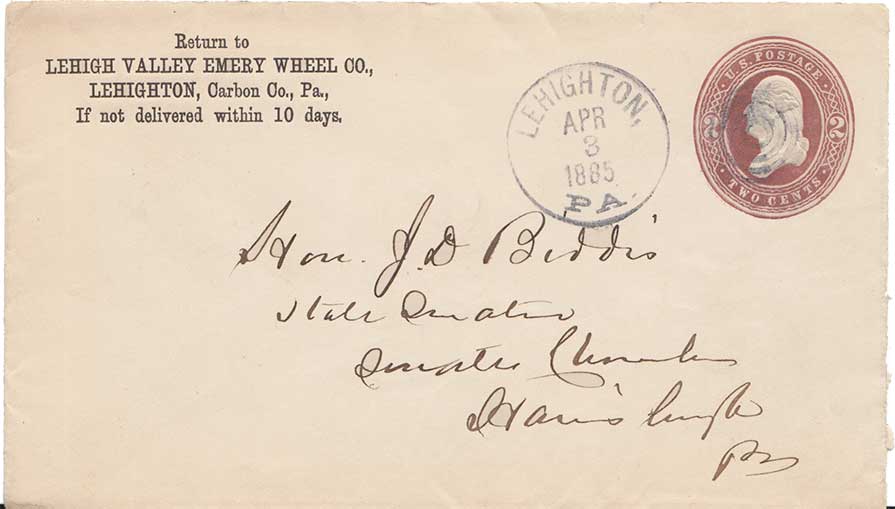 Return to
LEHIGH VALLEY EMERY WHEEL CO.,
LEHIGHTON, Carbon Co., Pa.,
If not delivered within 10 days.
LEHIGHTON,
APR
3
1885
PA.
U.S. POSTAGE
2 2
TWO CENTS
Hon. J. D Biddis
State Senator
Senate Chamber
Harrisburgh
Pa